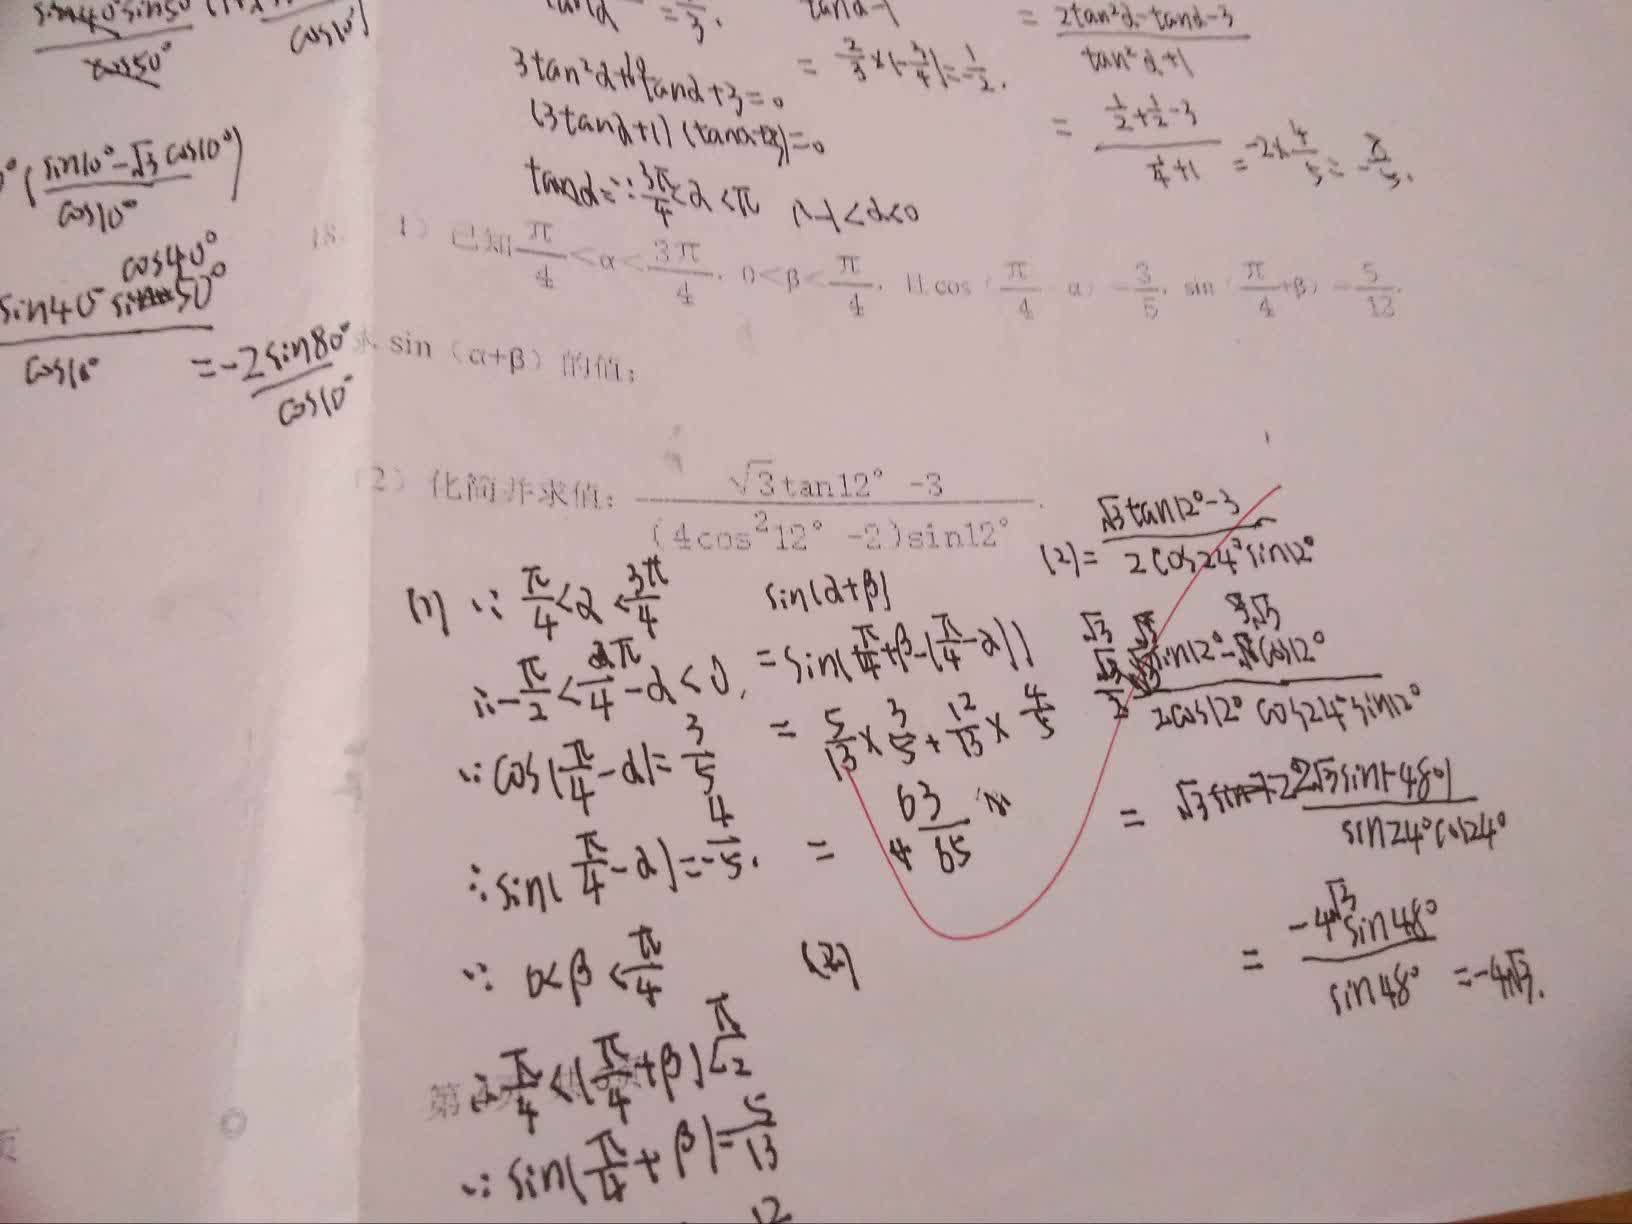 sin40°sin50
cos50°
cos10°
sin10°-√3cos10°
cos10°
cos40°
sin40° sin50°
cos10°
=-2sin80°
cos10°
3tan²α+10tanα+3=0
(3tanα+1)(tanα+3)=0
tanα=∵3π/4<α<π ∴-1<α<0
=2/3×(-3/4)=-1/2.
=(2tan²α-tanα-3)/(tan²α+1)
=(1/2+1/2-3)/(1/4+1)=-2×4/5=-8/5.
18. (1) 已知π/4<α<3π/4, 0<β<π/4, 且cos(π/4-α)=3/5, sin(π/4+β)=5/13,
求 sin (α+β) 的值;
(2) 化简并求值: (√3tan12° -3)/((4cos²12° -2)sin12°).
(1) ∵ π/4<α<3π/4
∴-π/2<π/4-α<0,
∵ cos(π/4-α)=3/5
∴sin(π/4-α)=-4/5.
∵ 0<β<π/4
∴π/4<(π/4+β)<π/2
∵ sin(π/4+β)=5/13
12
sin(α+β)
=sin(π/4+β-(π/4-α))
=5/13×3/5+12/13×4/5
=63/65
(2)
(2)=(√3tan12°-3)/(2cos24°sin12°)
2cos12°cos24°sin12°
=2√3sin(-48°)/(sin24°cos24°)
=-4√3sin48°/sin48°=-4√3.